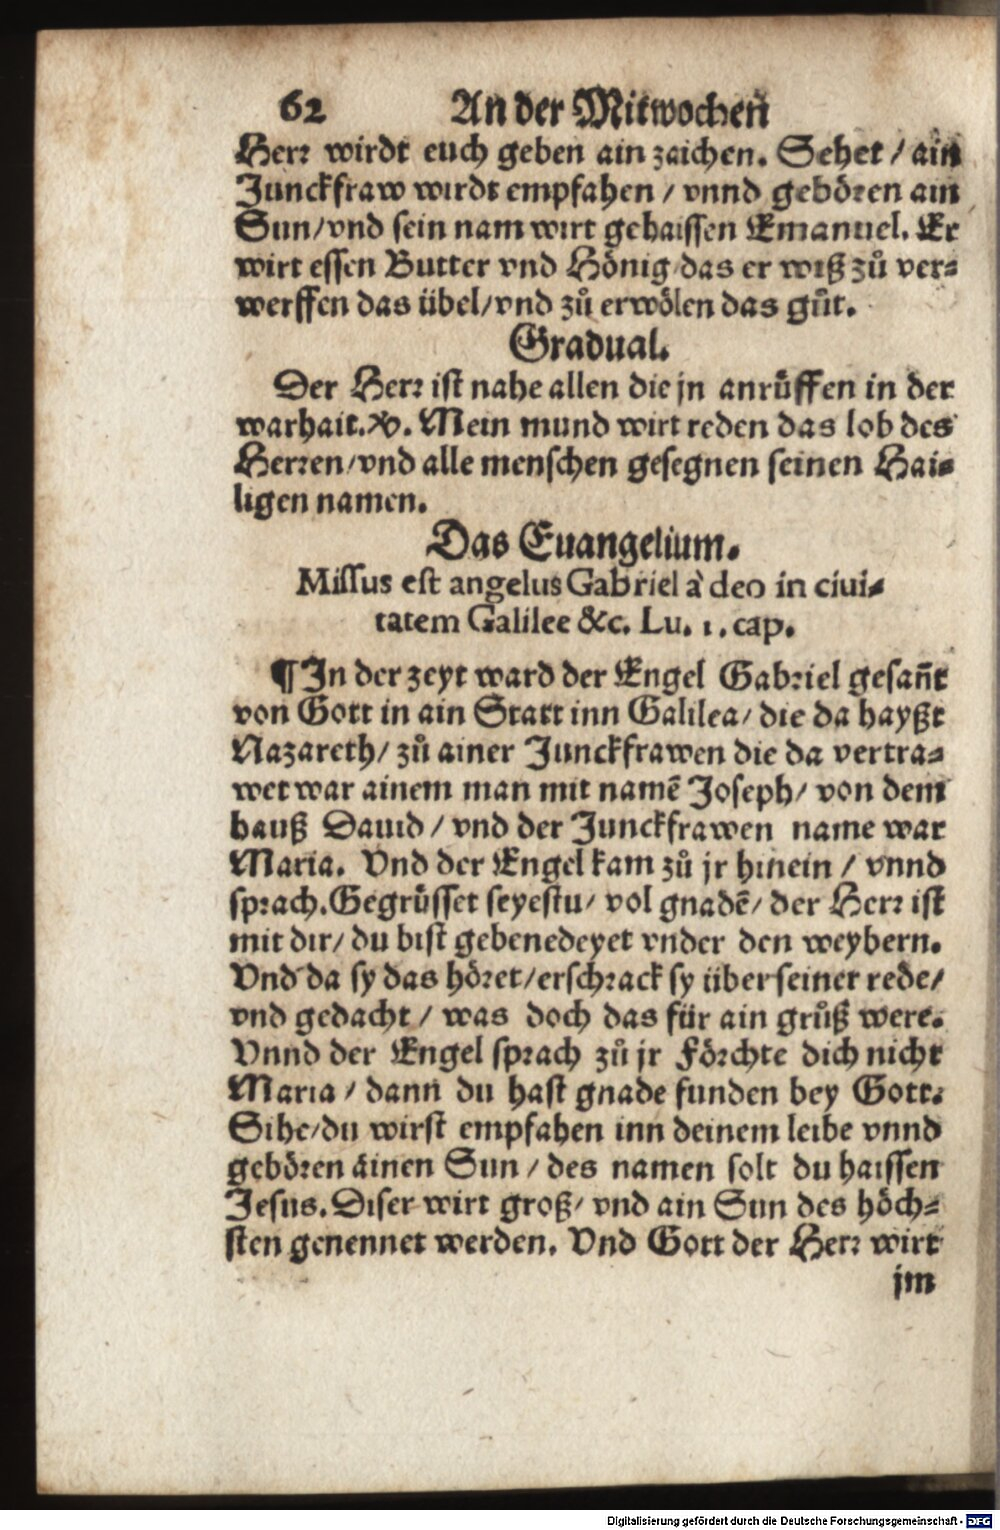 62 An der Mitwochen
Herr wirdt euch geben ain zaichen. Sehet / ain
Junckfraw wirdt empfahen / vnnd gebören ain
Sun/vnd sein nam wirt gehaissen Emanuel. Er
wirt essen Butter vnd Hönig/das er wiß zů ver⸗
werffen das übel/vnd zů erwölen das gůt.
Gradual.
Der Herr ist nahe allen die jn anrůffen in der
warhait. ℣. Mein mund wirt reden das lob des
Herren/vnd alle menschen gesegnen seinen Hai⸗
ligen namen.
Das Euangelium.
Missus est angelus Gabriel à deo in ciui⸗
tatem Galilee &c. Lu. 1. cap.
¶ In der zeyt ward der Engel Gabriel gesañt
von Gott in ain Statt inn Galilea/ die da hayßt
Nazareth/ zů ainer Junckfrawen die da vertra⸗
wet war ainem man mit namē Joseph/ von dem
hauß Dauid / vnd der Junckfrawen name war
Maria. Vnd der Engel kam zů jr hinein / vnnd
sprach. Gegrůsset seyestu/ vol gnadē/ der Herr ist
mit dir/ du bist gebenedeyet vnder den weybern.
Vnd da sy das höret/erschrack sy über seiner rede/
vnd gedacht / was doch das für ain grůß were.
Vnnd der Engel sprach zů jr Förchte dich nicht
Maria / dann du hast gnade funden bey Gott.
Sihe/du wirst empfahen inn deinem leibe vnnd
gebören ainen Sun / des namen solt du haissen
Jesus. Diser wirt groß/ vnd ain Sun des höch⸗
sten genennet werden. Vnd Gott der Herr wirt
jm
Digitalisierung gefördert durch die Deutsche Forschungsgemeinschaft - DFG